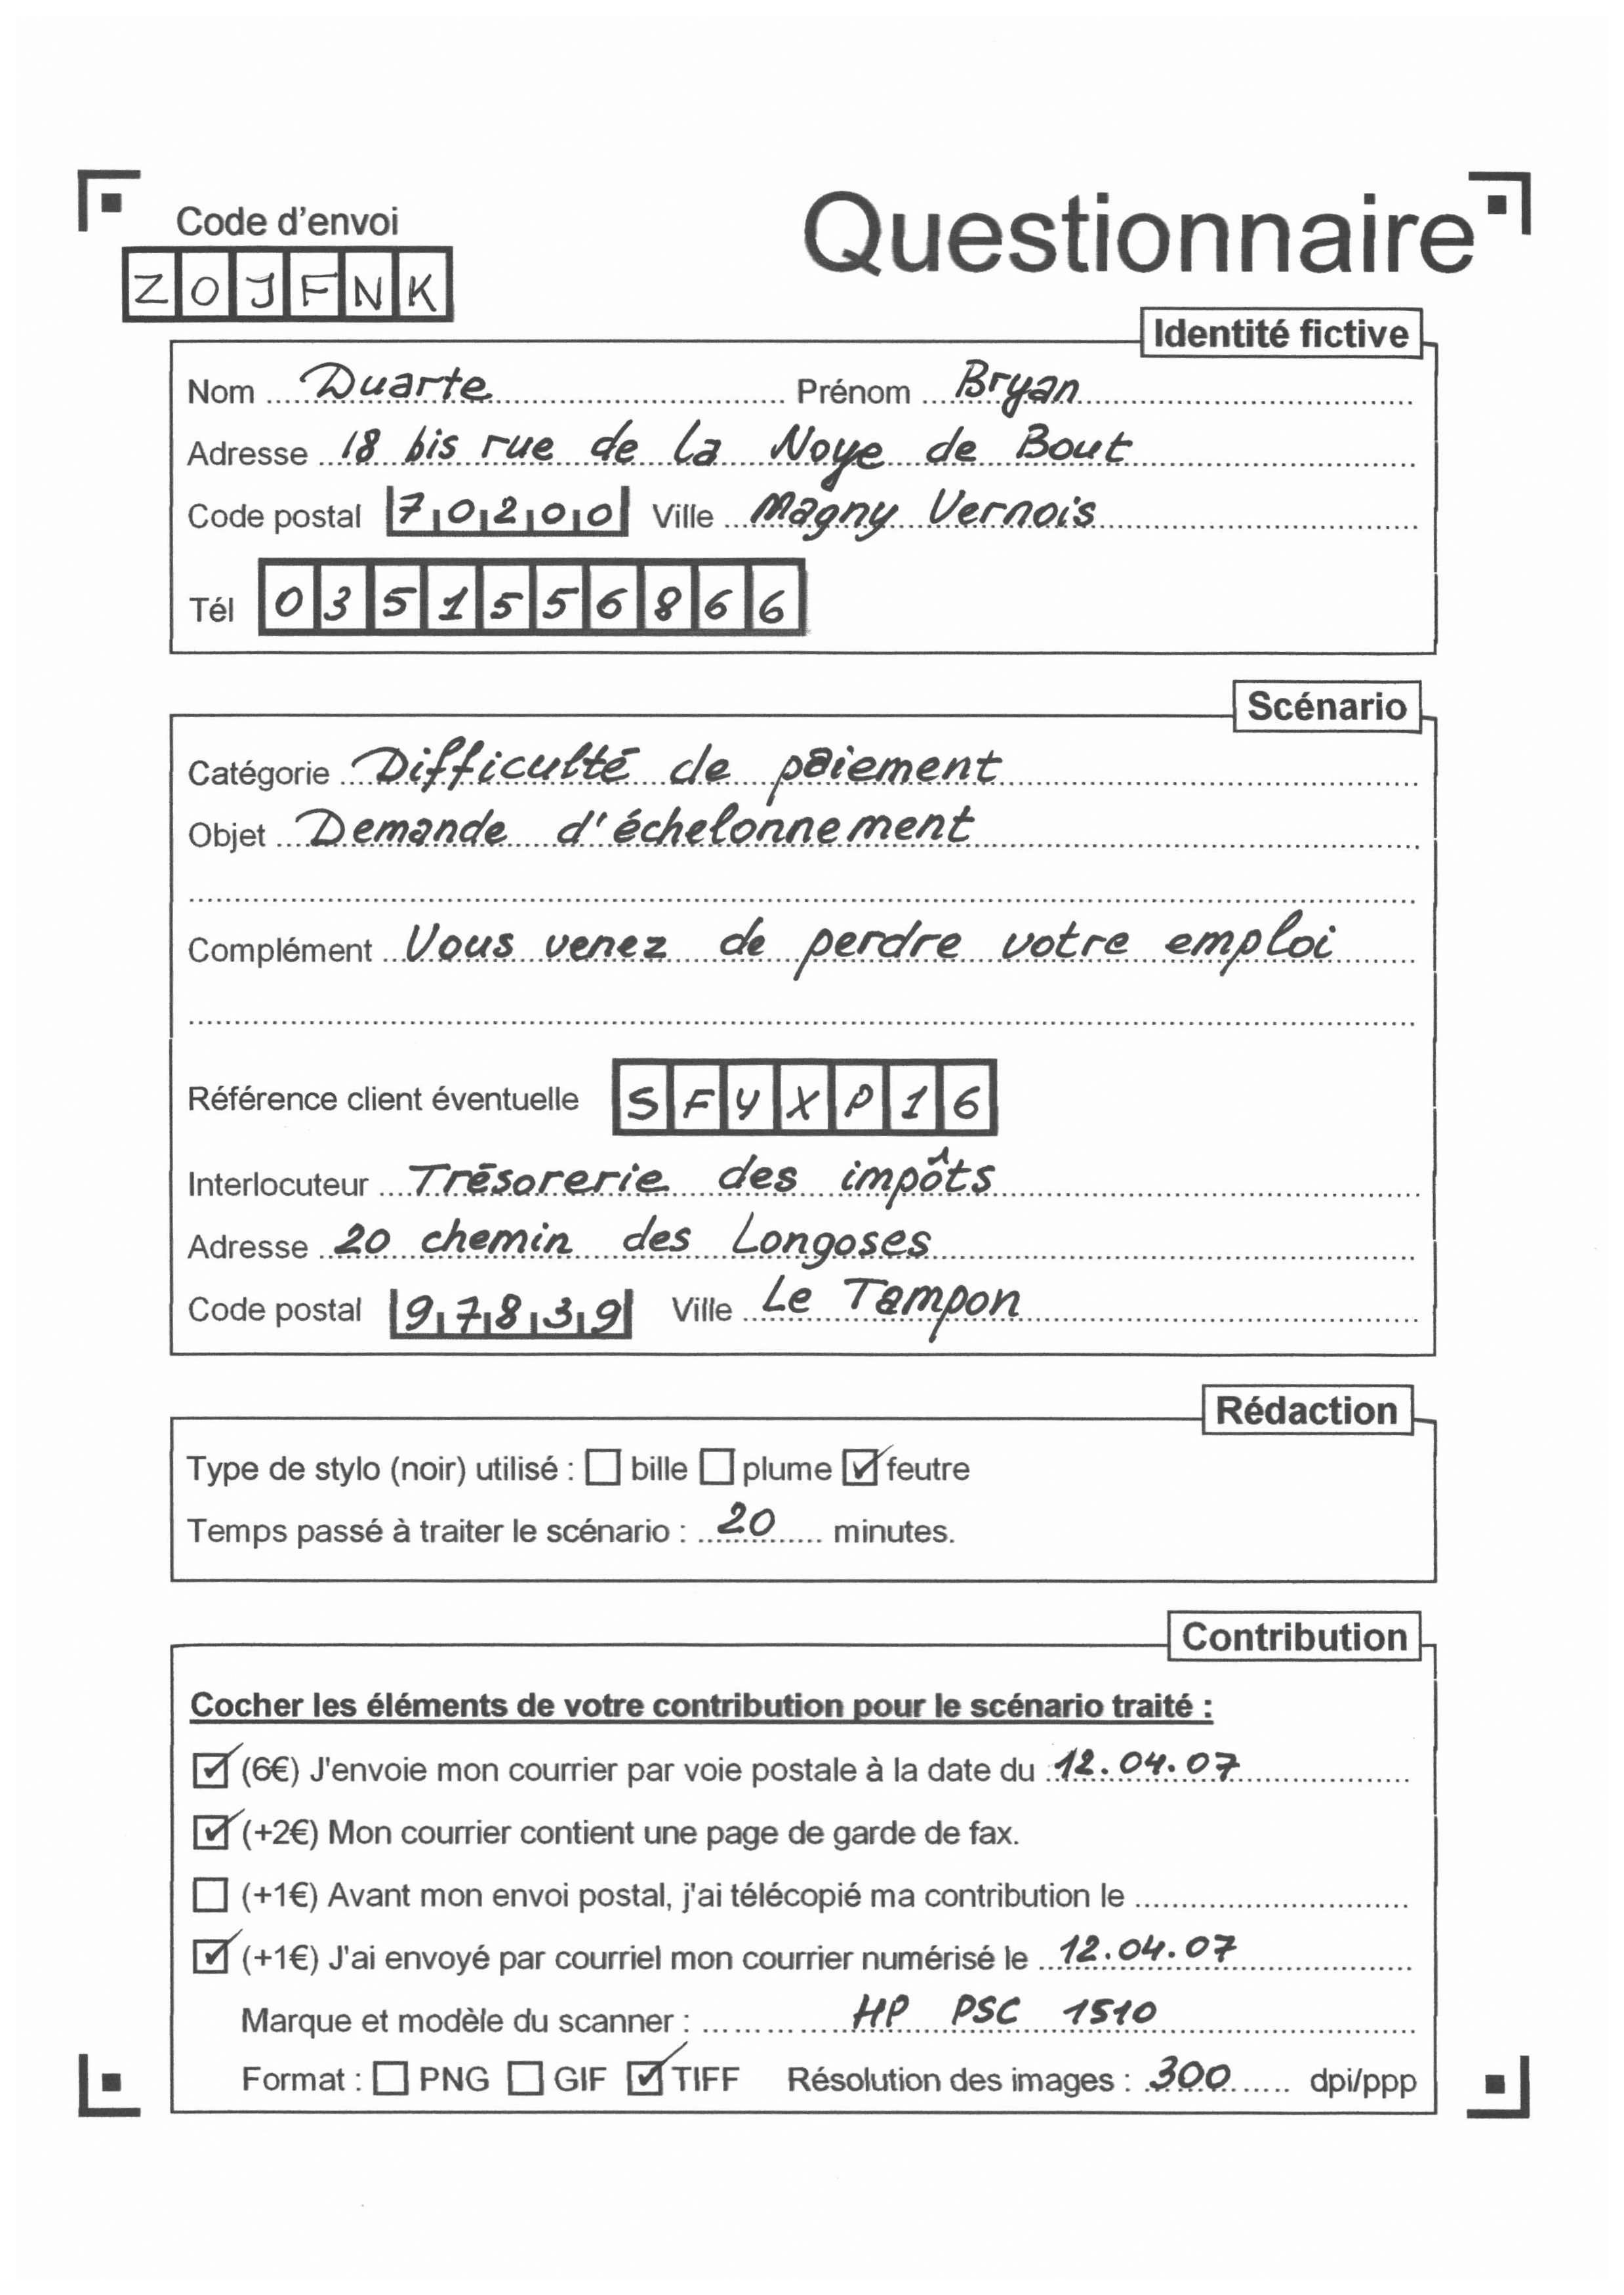 Code d'envoi
ZOJFNK
Questionnaire
Identité fictive
Nom Duarte Prénom Bryan
Adresse 18 bis rue de la Noye de Bout
Code postal 70200 Ville Magny Vernois
Tél 0351556866
Scénario
Catégorie Difficulté de paiement
Objet Demande d'échelonnement
Complément Vous venez de perdre votre emploi
Référence client éventuelle SFYXP16
Interlocuteur Trésorerie des impôts
Adresse 20 chemin des Longoses
Code postal 97839 Ville Le Tampon
Rédaction
Type de stylo (noir) utilisé : ☐ bille ☐ plume ☑ feutre
Temps passé à traiter le scénario : 20 minutes.
Contribution
Cocher les éléments de votre contribution pour le scénario traité :
☑ (6€) J'envoie mon courrier par voie postale à la date du 12.04.07
☑ (+2€) Mon courrier contient une page de garde de fax.
☐ (+1€) Avant mon envoi postal, j'ai télécopié ma contribution le
☑ (+1€) J'ai envoyé par courriel mon courrier numérisé le 12.04.07
Marque et modèle du scanner : HP PSC 1510
Format : ☐ PNG ☐ GIF ☑ TIFF Résolution des images : 300 dpi/ppp